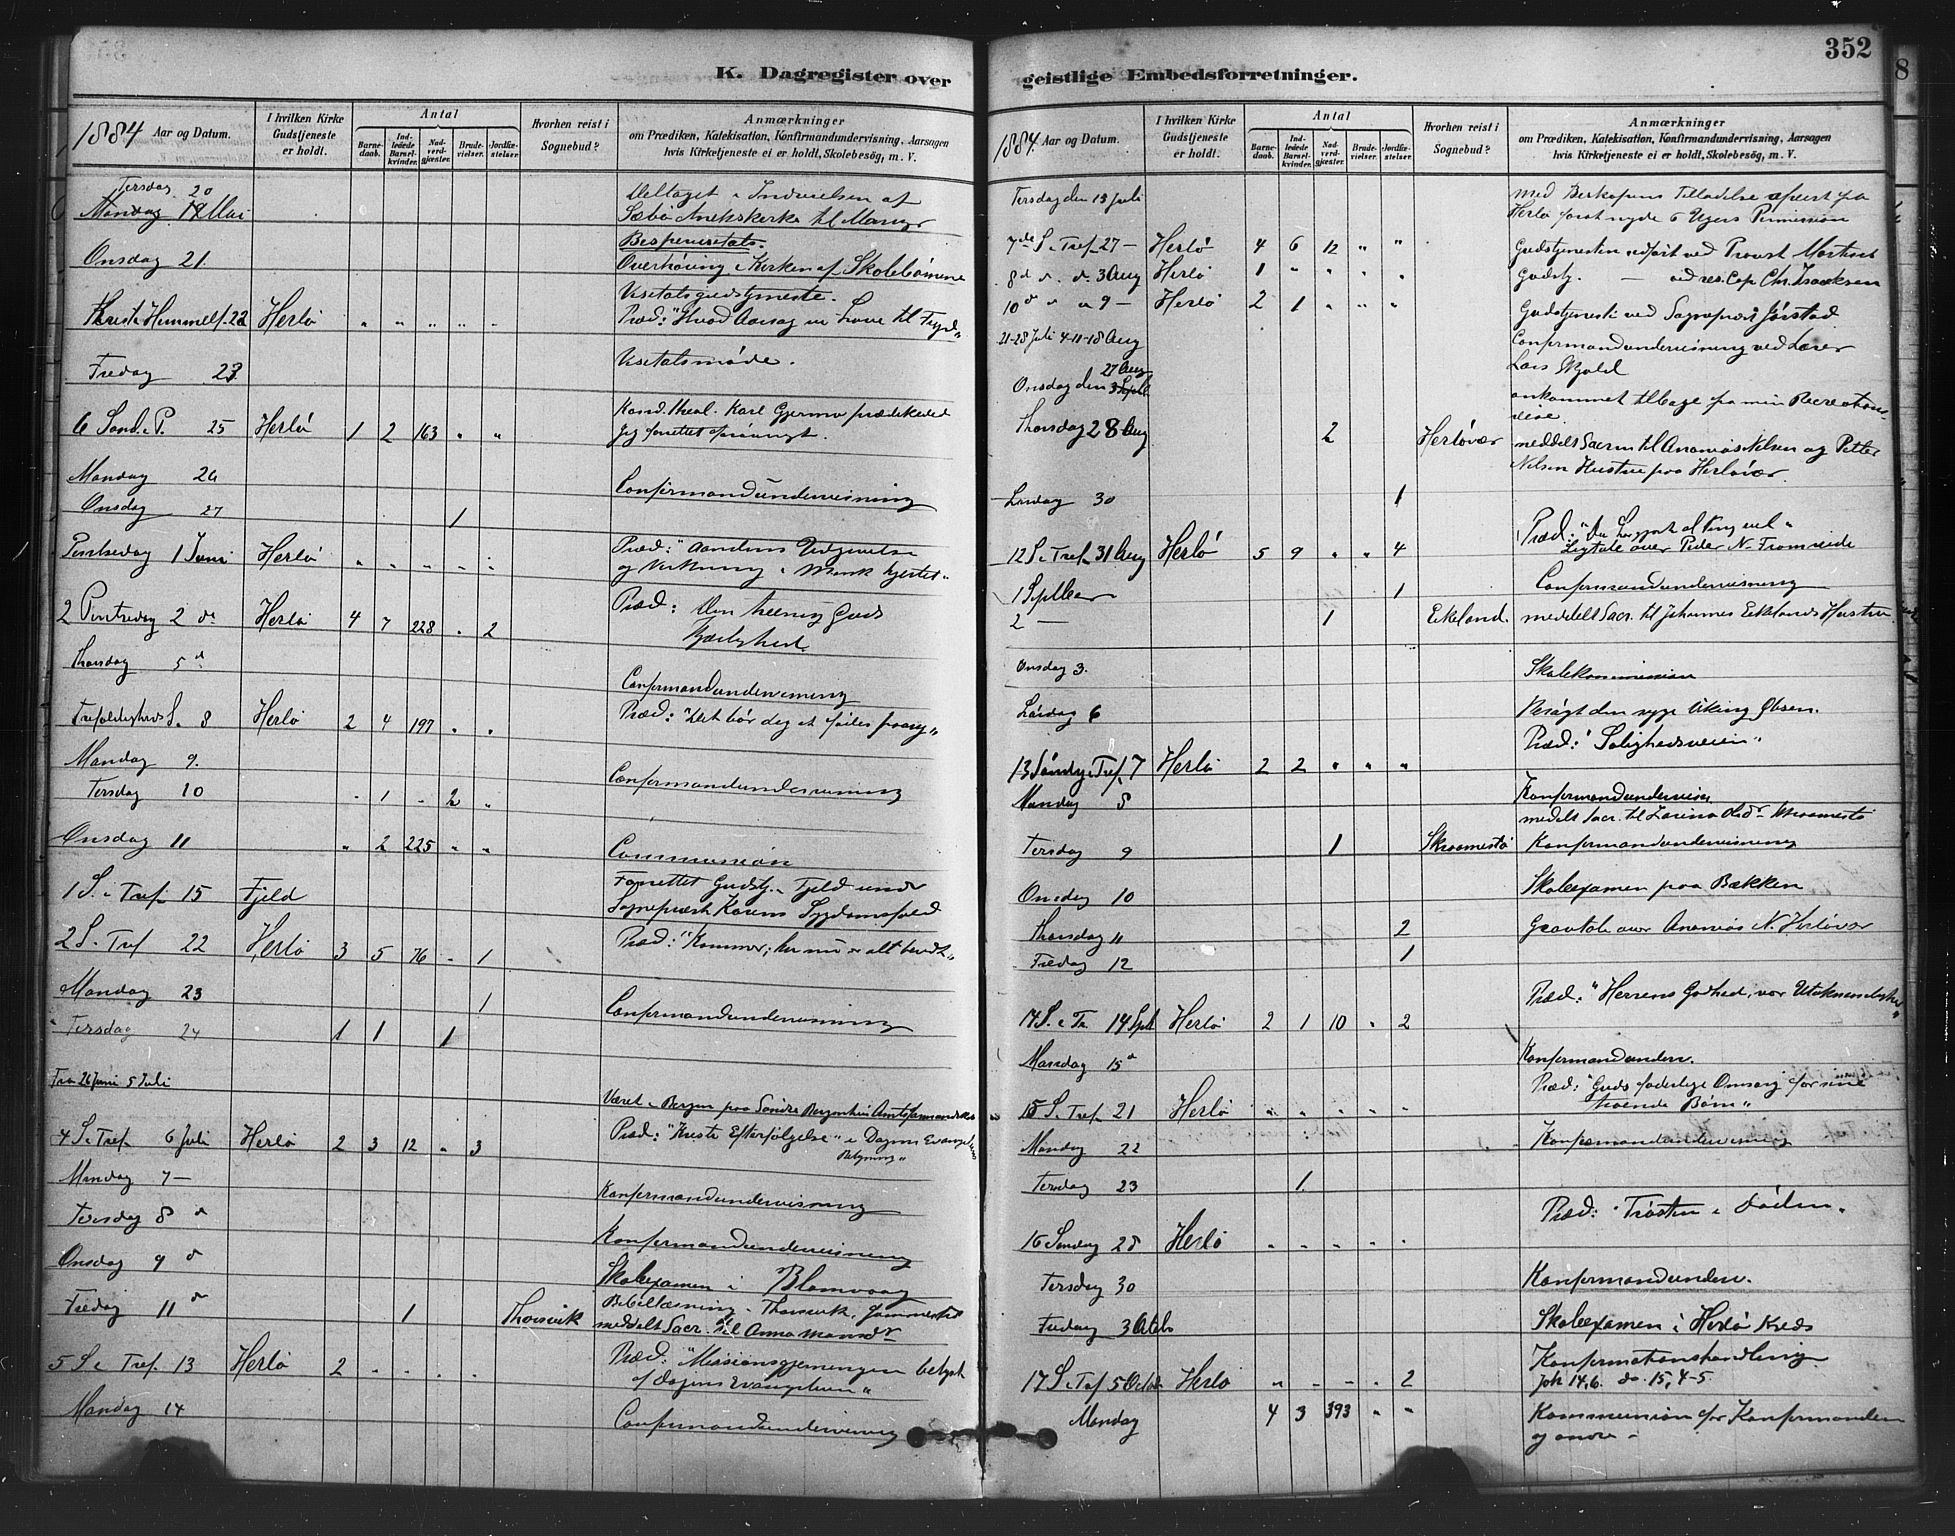 352
K. Dagregister over
1884 Aar og Datum.
I hvilken Kirke Gudstjeneste er holdt.
Antal
Barnedaab.
Indledede Barselkvinder.
Nadverdgjæster.
Brudevielser.
Jordfæstelser.
Hvorhen reist i Sognebud?
Anmærkninger
om Prædiken, Katekisation, Konfirmandundervisning, Aarsagen
hvis Kirketjeneste ei er holdt, Skolebesøg, m. V.
Tersdag 20
Mandag Mai Deltaget i Indvielsen af
Sæbø Annekskerke til Manger
Onsdag 21.
Overhøring i Kirken af Skolebørnene
Visetatsgudstjeneste.
Kristi Himmelf. 22 Herlø " " " " " Præd: "Hvad Aarsag er have til Fryd"
Fredag 23 Visetatsmøde.
Kand. theol. Karl Gjerme prædikede
6 Sønd. P. 25 Herlø 1 2 163 " " Jeg forrettet forøvrigt.
Mandag 26 Confirmandundervisning
Onsdag 27 1
Pintsedag 1 Juni Herlø " " " " " Præd: "Aandens Udgydelse
og Virkning i Mensk hjertet"
2 Pintsedag 2 d Herlø 4 7 228 " 2 Præd: Den Guds
Kjærlighed
Thorsdag 5 d Confirmandundervisning
Trefoldigheds S. 8 Herlø 2 4 197 " " Præd: "Det bør dig at fødes paany"
Mandag 9. Confirmandundervisning
Tersdag 10 " 1 " 2 "
Onsdag 11 " 2 225 " " Communion
1 S. i Tref. 15 Fjeld Forrettet Gudstj. i Fjeld under
Sognepræst Sygdomsforfald
2 S. Tref 22 Herlø 3 5 76 " 1 Præd: "Kommer, thi nu er alt beredt"
Mandag 23 1 Confirmandundervisning
Tersdag 24 1 1 1
Fra 26 Juni 5 Juli Været i Bergen paa Søndre Bergenhus
4 S. i Tref. 6 Juli Herlø 2 3 12 " 3 Præd: "Kristi Efterfølgelse" i Dagens
Belysning"
Mandag 7 — Konfirmandundervisning
Tersdag 8 d Konfirmandundervisning
Onsdag 9 d Skoleexamen i Blomvaag
Fredag 11 d 1 Thorsvik Bibellæsning i Thorsvik.
meddelt Sacr. til Anna Monsdr
5 S. i Tref. 13 Herlø 2 " " " " Præd: "Missionsgjerningen belyst
af dagens Evangelium"
Mandag 14 Confirmandundervisning
geistlige Embedsforretninger.
1884. Aar og Datum.
I hvilken Kirke Gudstjeneste er holdt.
Antal
Barnedaab.
Indledede Barselkvinder.
Nadverdgjæster.
Brudevielser.
Jordfæstelser.
Hvorhen reist i Sognebud?
Anmærkninger
om Prædiken, Katekisation, Konfirmandundervisning, Aarsagen
hvis Kirketjeneste ei er holdt, Skolebesøg, m. V.
Tersdag den 15 Juli med Biskopens Tilladelse
Herlø for at nyde 6 Ugers Permission
7de S. i Tref. 27 — Herlø 4 6 12 " " Gudstjenesten udført ved Provst
8d d. d. 3 Aug Herlø 1 " " " " Gudstj. — ved res. Cap Chr. Isaaksen
10d " " 9 — Herlø 2 1 " " " Gudstjeneste ved Sognepræst Jørstad
21-28 Juli 4-11-18 Aug Confirmandundervisning ved Lærer
Lars
27 Aug
Onsdag den 3 Septb ankommet tilbage fra min Recreations-
reise
Thorsdag 28 Aug 2 Herløvær meddelt Sacrm til Ananias Nilsen og Petter
Nilsen Hustru paa Herløvær.
Lørdag 30 1
Præd:
12 S. i Tref. 31 Aug Herlø 5 9 " " 4 Ligtale over Peder N. Fromreide
1 Septber 1 Confirmandundervisning
2 — 1 Ekeland. meddelt Sacr. til Johannes Eklands Hustru
Onsdag 3. Skolekommission
Lørdag 6 Besøgt den syge Viking Olsen.
Præd: "Salighedsveien"
13 Søndg i Tref. 7 Herlø 2 2 " " "
Mandag 8 Konfirmandundervisn
meddelt Sacr. til
Tersdag 9 1 Konfirmandundervisning
Onsdag 10 Skoleexamen paa Bakken
Thorsdag 11 2 Gravtale over Ananias N. Herløvær
Fredag 12 1
Præd: "Herrens Godhed, vor Utaknemlighed"
14 S. i Tr. 14 Sept Herlø 2 1 10 " 2
Mandag 15 d Konfirmandunderv.
Præd: "Guds faderlige Omsorg for sine
15 S. i Tref. 21 Herlø " " " " " troende Børn"
Mandag 22 Konfirmandundervisning
Tersdag 23 1
Præd: "Trøsten i Døden"
16 Søndag 28 Herlø " " " " "
Tersdag 30 Konfirmandunderv.
Fredag 3 Octob Skoleexamen i Herlø Kreds
Konfirmationshandling
17 S. i Tref. 5 Octob Herlø " " " " 2 Joh 14,6. do. 15, 4-5
Mandag 4 3 393 " " Kommunion for Konfirmanden
og andre —